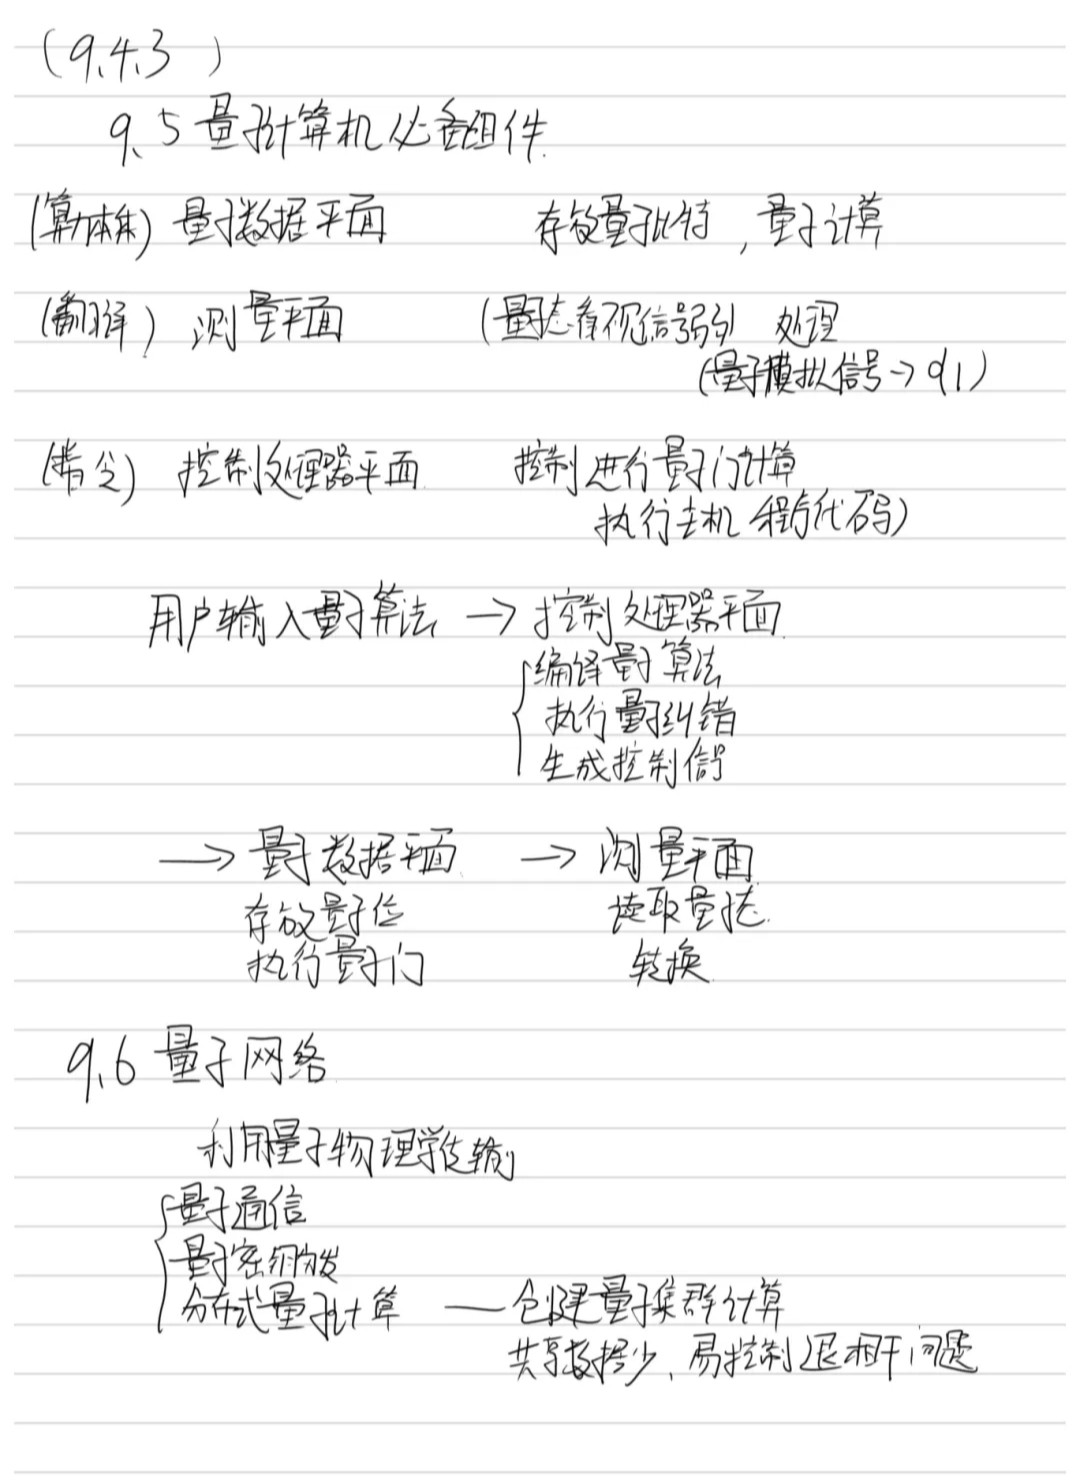 (9.4.3 )
9.5 量子计算机必备组件.
(算力本体) 量子数据平面 存放量子比特，量子计算
(翻译) 测量平面 (量子态有视信号弱) 处理
(量子模拟信号→01)
(指令) 控制处理器平面. 控制进行量子门计算
执行主机 程序代码)
用户输入量子算法 → 控制处理器平面.
编译量子算法
执行量子纠错
生成控制信号
→ 量子数据平面. → 测量平面.
存放量子位 读取量子态.
执行量子门 转换.
9.6 量子网络.
利用量子物理学传输
量子通信
量子密钥分发
分布式量子计算 — 创建量子集群计算
共享数据少，易控制退相干问题